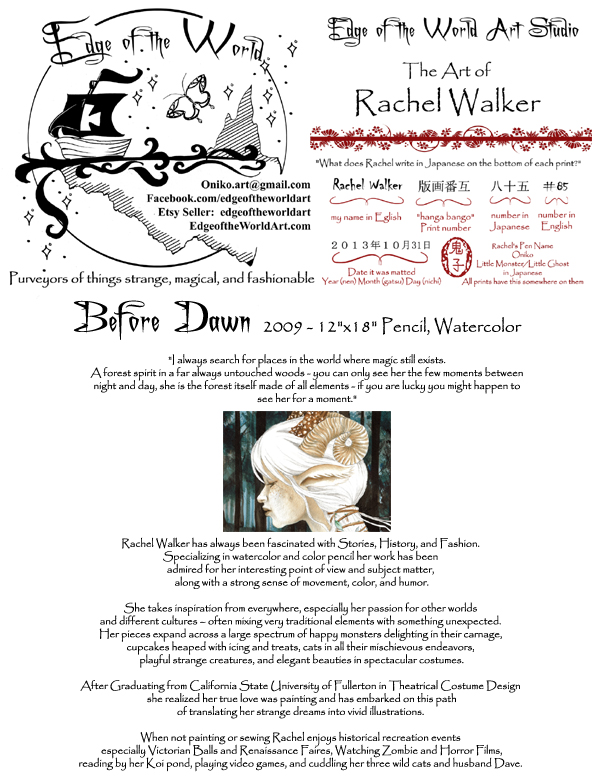 Edge of the World
Oniko.art@gmail.com
Facebook.com/edgeoftheworldart
Etsy Seller: edgeoftheworldart
EdgeoftheWorldArt.com
Purveyors of things strange, magical, and fashionable
Edge of the World Art Studio
The Art of
Rachel Walker
"What does Rachel write in Japanese on the bottom of each print?"
Rachel Walker 版画番互 八十五 #85
my name in Eglish "hanga bango" Print number number in Japanese number in English
2013年10月31日
Date it was matted
Year (nen) Month (gatsu) Day (nichi)
鬼子
Rachel's Pen Name
Oniko
Little Monster/Little Ghost
in Japanese
All prints have this somewhere on them
Before Dawn 2009 - 12"x18" Pencil, Watercolor
"I always search for places in the world where magic still exists.
A forest spirit in a far always untouched woods - you can only see her the few moments between
night and day, she is the forest itself made of all elements - if you are lucky you might happen to
see her for a moment."
Rachel Walker has always been fascinated with Stories, History, and Fashion.
Specializing in watercolor and color pencil her work has been
admired for her interesting point of view and subject matter,
along with a strong sense of movement, color, and humor.
She takes inspiration from everywhere, especially her passion for other worlds
and different cultures – often mixing very traditional elements with something unexpected.
Her pieces expand across a large spectrum of happy monsters delighting in their carnage,
cupcakes heaped with icing and treats, cats in all their mischievous endeavors,
playful strange creatures, and elegant beauties in spectacular costumes.
After Graduating from California State University of Fullerton in Theatrical Costume Design
she realized her true love was painting and has embarked on this path
of translating her strange dreams into vivid illustrations.
When not painting or sewing Rachel enjoys historical recreation events
especially Victorian Balls and Renaissance Faires, Watching Zombie and Horror Films,
reading by her Koi pond, playing video games, and cuddling her three wild cats and husband Dave.